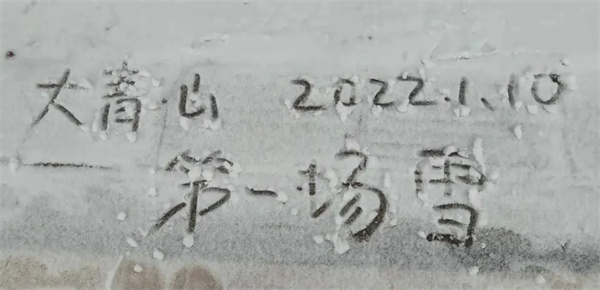 大青山 2022.1.10
第一场雪